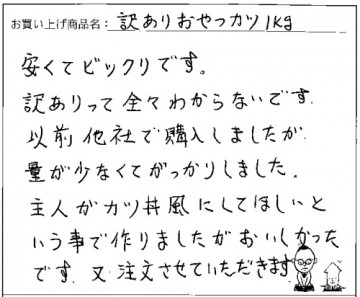 お買い上げ商品名：訳ありおやつカツ1kg
安くてビックリです。
訳ありって全々わからないです.
以前他社で購入しましたが.
量が少なくてがっかりしました。
主人がカツ丼風にしてほしいと
いう事で作りましたがおいしかった
です.又.注文させていただきます